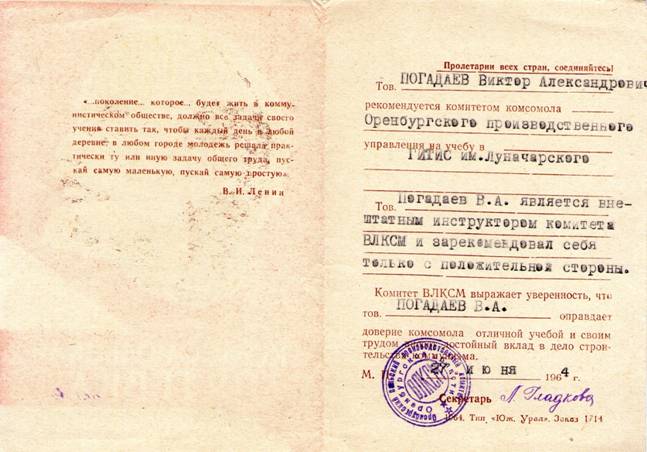 «...поколение... которое... будет жить в комму-
нистическом обществе, должно все задачи своего
учения ставить так, чтобы каждый день в любой
деревне, в любом городе молодежь решала прак-
тически ту или иную задачу общего труда, пус-
кай самую маленькую, пускай самую простую».
В. И. Ленин
Пролетарии всех стран, соединяйтесь!
Тов. ПОГАДАЕВ Виктор Александрович
рекомендуется комитетом комсомола
Оренбургского производственного
управления на учебу в
ГИТИС им.Луначарского
Тов. Погадаев В.А. является вне-
штатным инструктором комитета
ВЛКСМ и зарекомендовал себя
только с положительной стороны.
Комитет ВЛКСМ выражает уверенность, что
тов. ПОГАДАЕВ В.А. оправдает
доверие комсомола отличной учебой и своим
трудом достойный вклад в дело строи-
тельства коммунизма.
М. П. 27 июня 1964 г.
ВЛКСМ
Секретарь Л. Гладкова
1964. Тип. «Юж. Урал». Заказ 1714